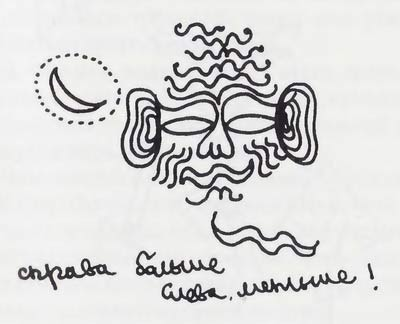 справа больше
слева, меньше!